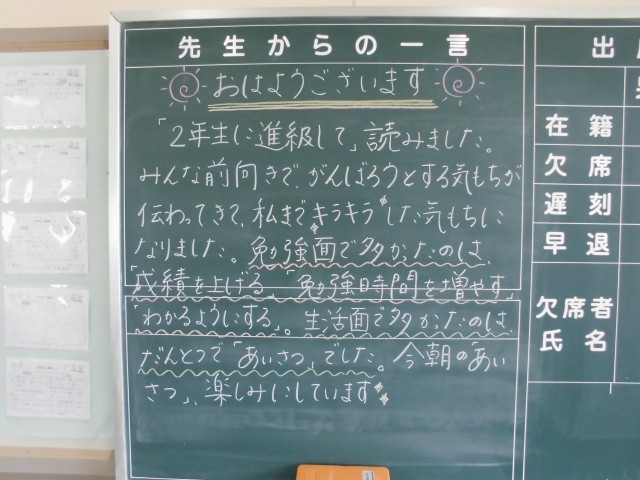 先生からの一言
おはようございます
「2年生に進級して」読みました。
みんな前向きで、がんばろうとする気もちが
伝わってきて、私までキラキラした気もちに
なりました。勉強面で多かったのは、
「成績を上げる」「勉強時間を増やす」
「わかるようにする」。生活面で多かったのは、
だんとつで「あいさつ」でした。今朝の「あい
さつ」、楽しみにしています
出
在籍
欠席
遅刻
早退
欠席者
氏名